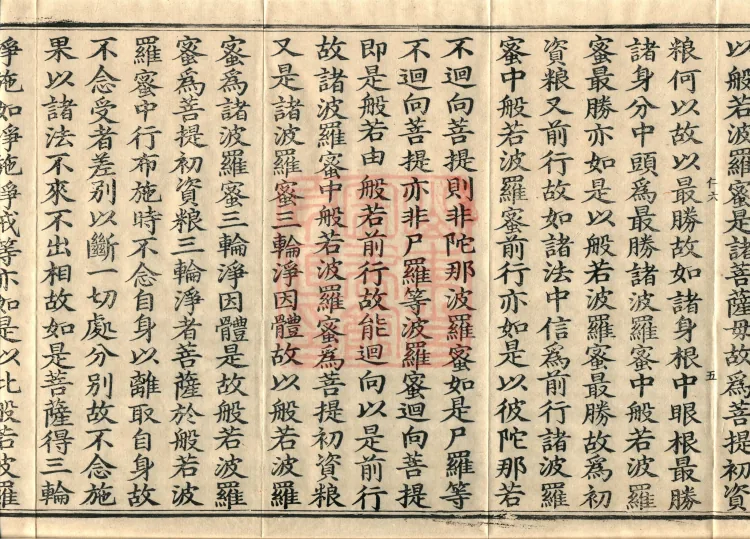 以般若波羅蜜是諸菩薩母故爲菩提初資
仁六　五
粮何以故以最勝故如諸身根中眼根最勝
諸身分中頭爲最勝諸波羅蜜中般若波羅
蜜最勝亦如是以般若波羅蜜最勝故爲初
資粮又前行故如諸法中信爲前行諸波羅
蜜中般若波羅蜜前行亦如是以彼陀那若
不迴向菩提則非陀那波羅蜜如是尸羅等
不迴向菩提亦非尸羅等波羅蜜迴向菩提
即是般若由般若前行故能迴向以是前行
故諸波羅蜜中般若波羅蜜爲菩提初資粮
又是諸波羅蜜三輪淨因體故以般若波羅
蜜爲諸波羅蜜三輪淨因體是故般若波羅
蜜爲菩提初資粮三輪淨者菩薩於般若波
羅蜜中行布施時不念自身以離取自身故
不念受者差別以斷一切處分別故不念施
果以諸法不來不出相故如是菩薩得三輪
淨施如淨施淨戒等亦如是以此般若波羅